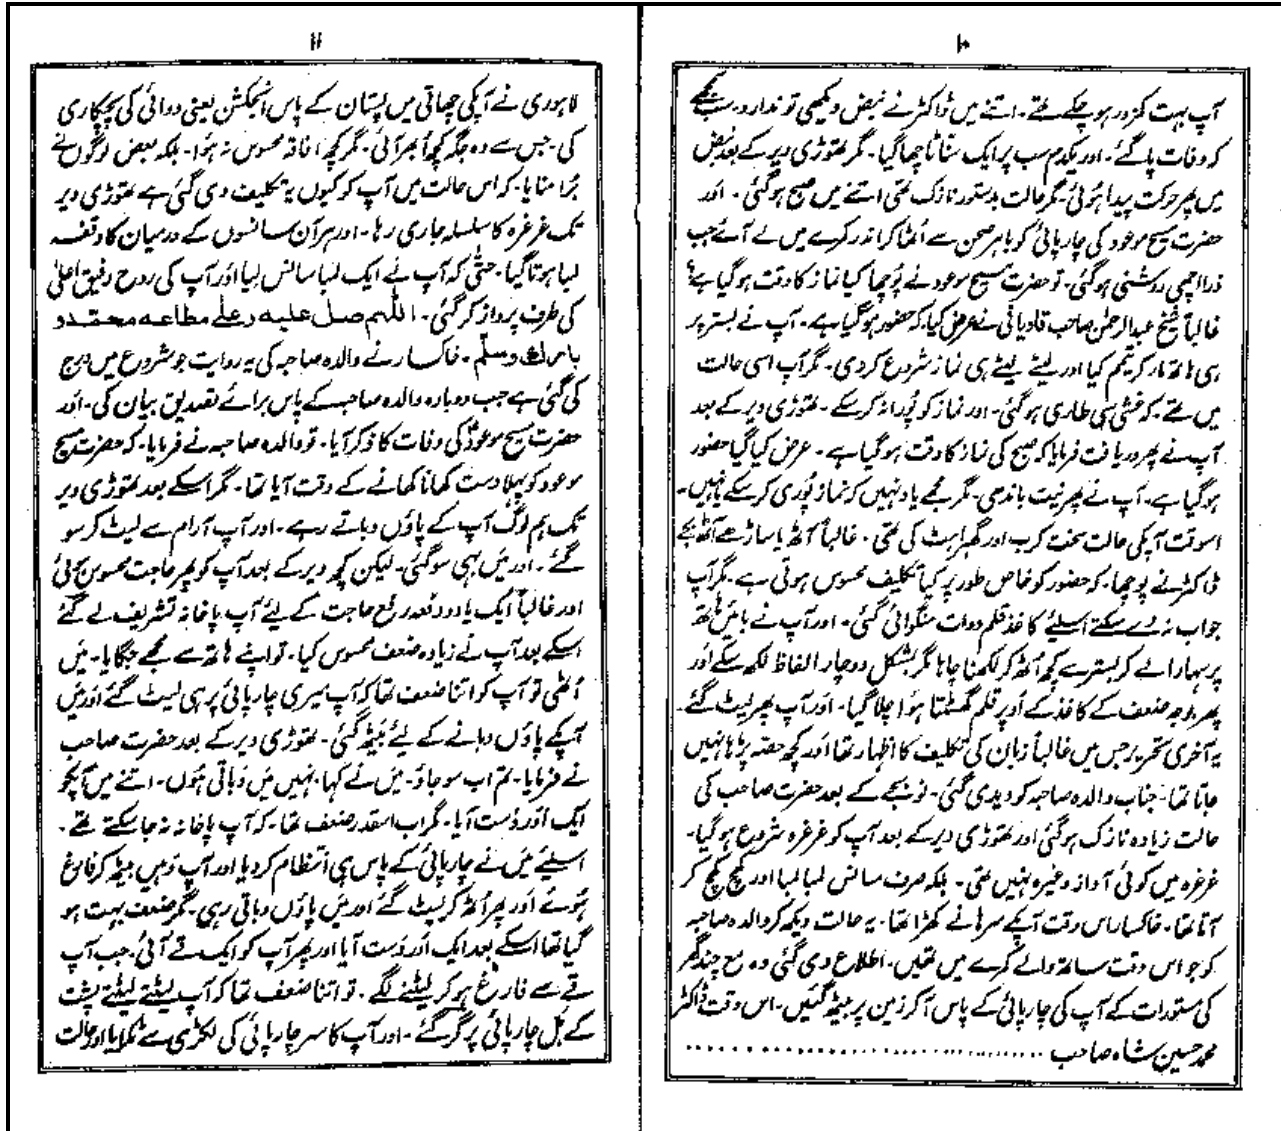 ۱۰
آپ بہت کمزور ہو چکے تھے۔ اتنے میں ڈاکٹر نے نبض دیکھی تو ندارد۔ سب سمجھے
کہ وفات پا گئے۔ اور یکدم سب پر ایک سناٹا چھا گیا۔ مگر تھوڑی دیر کے بعد نبض
میں پھر حرکت پیدا ہوئی۔ مگر حالت بدستور نازک تھی اتنے میں صبح ہو گئی۔ اور
حضرت مسیح موعود کی چارپائی کو باہر صحن سے اُٹھا کر اندر کمرے میں لے آئے جب
ذرا اچھی روشنی ہو گئی۔ تو حضرت مسیح موعود نے پوچھا کیا نماز کا وقت ہو گیا ہے؟
غالباً شیخ عبدالرحمٰن صاحب قادیانی نے عرض کیا کہ حضور ہو گیا ہے۔ آپ نے بستر پر
ہی ہاتھ مار کر تیمم کیا اور لیٹے لیٹے ہی نماز شروع کر دی۔ مگر آپ اسی حالت
میں تھے۔ کہ غشی سی طاری ہو گئی۔ اور نماز کو پُورا نہ کر سکے۔ تھوڑی دیر کے بعد
آپ نے پھر دریافت فرمایا کہ صبح کی نماز کا وقت ہو گیا ہے۔ عرض کیا گیا حضور
ہو گیا ہے۔ آپ نے پھر نیت باندھی۔ مگر مجھے یاد نہیں کہ نماز پُوری کر سکے یا نہیں۔
اسوقت آپکی حالت سخت کرب اور گھبراہٹ کی تھی۔ غالباً آٹھ یا ساڑھے آٹھ بجے
ڈاکٹر نے پوچھا۔ کہ حضور کو خاص طور پر کیا تکلیف محسوس ہوتی ہے۔ مگر آپ
جواب نہ دے سکے اسلیئے کاغذ قلم دوات منگوائی گئی۔ اور آپ نے بائیں ہاتھ
پر سہارا لے کر بستر سے کچھ اُٹھ کر لکھنا چاہا مگر بمشکل دو چار الفاظ لکھ سکے اور
پھر بوجہ ضعف کے کاغذ کے اُوپر قلم گھسٹتا ہوا چلا گیا۔ اور آپ پھر لیٹ گئے۔
یہ آخری تحریر جس میں غالباً زبان کی تکلیف کا اظہار تھا اور کچھ حصہ پڑھا نہیں
جاتا تھا۔ جناب والدہ صاحبہ کو دیدی گئی۔ نو بجے کے بعد حضرت صاحب کی
حالت زیادہ نازک ہو گئی اور تھوڑی دیر کے بعد آپ کو غرغرہ شروع ہو گیا۔
غرغرہ میں کوئی آواز وغیرہ نہیں تھی۔ بلکہ صرف سانس لمبا لمبا اور کھچ کھچ کر
آتا تھا۔ خاکسار اس وقت آپکے سرہانے کھڑا تھا۔ یہ حالت دیکھ کر والدہ صاحبہ
کو جو اس وقت ساتھ والے کمرے میں تھیں۔ اطلاع دی گئی وہ مع چند گھر
کی مستورات کے آپ کی چارپائی کے پاس آکر زمین پر بیٹھ گئیں۔ اس وقت ڈاکٹر
محمد حسین شاہ صاحب ........................................
۱۱
لاہوری نے آپکی چھاتی میں پستان کے پاس انجکشن یعنی دوائی کی پچکاری
کی۔ جس سے وہ جگہ کچھ اُبھر آئی۔ مگر کچھ افاقہ محسوس نہ ہوا۔ بلکہ بعض لوگوں نے
بُرا منایا۔ کہ اس حالت میں آپ کو کیوں یہ تکلیف دی گئی ہے تھوڑی دیر
تک غرغرہ کا سلسلہ جاری رہا۔ اور ہر آن سانسوں کے درمیان کا وقفہ
لمبا ہوتا گیا۔ حتٰی کہ آپ نے ایک لمبا سانس لیا اور آپ کی روح رفیق اعلٰی
کی طرف پرواز کر گئی۔ اللّٰہم صل علیہ و علٰے مطاعہ محمد و
بارک وسلم۔ خاکسار نے والدہ صاحبہ کی یہ روایت جو شروع میں درج
کی گئی ہے جب دوبارہ والدہ صاحبہ کے پاس برائے تصدیق بیان کی۔ اور
حضرت مسیح موعودؑ کی وفات کا ذکر آیا۔ تو والدہ صاحبہ نے فرمایا۔ کہ حضرت مسیح
موعود کو پہلا دست کھانا کھانے کے وقت آیا تھا۔ مگر اسکے بعد تھوڑی دیر
تک ہم لوگ آپ کے پاؤں دباتے رہے۔ اور آپ آرام سے لیٹ کر سو
گئے۔ اور میں بھی سو گئی۔ لیکن کچھ دیر کے بعد آپ کو پھر حاجت محسوس ہوئی
اور غالباً ایک یا دو دفعہ رفع حاجت کے لیئے آپ پاخانہ تشریف لے گئے
اسکے بعد آپ نے زیادہ ضعف محسوس کیا۔ تو اپنے ہاتھ سے مجھے جگایا۔ میں
اُٹھی تو آپ کو اتنا ضعف تھا کہ آپ میری چارپائی پر ہی لیٹ گئے اور میں
آپکے پاؤں دبانے کے لیئے بیٹھ گئی۔ تھوڑی دیر کے بعد حضرت صاحب
نے فرمایا۔ تم اب سو جاؤ۔ میں نے کہا۔ نہیں میں دباتی ہوں۔ اتنے میں آپکو
ایک اور دست آیا۔ مگر اب اسقدر ضعف تھا۔ کہ آپ پاخانہ نہ جا سکتے تھے۔
اسلیئے میں نے چارپائی کے پاس ہی انتظام کر دیا اور آپ وہیں بیٹھ کر فارغ
ہوئے اور پھر اُٹھ کر لیٹ گئے اور میں پاؤں دباتی رہی۔ مگر ضعف بہت ہو
گیا تھا اسکے بعد ایک اور دست آیا اور پھر آپ کو ایک قے آئی۔ جب آپ
قے سے فارغ ہو کر لیٹنے لگے۔ تو اتنا ضعف تھا کہ آپ لیٹتے لیٹتے پشت
کے بل چارپائی پر گر گئے۔ اور آپ کا سر چارپائی کی لکڑی سے ٹکرایا اور حالت